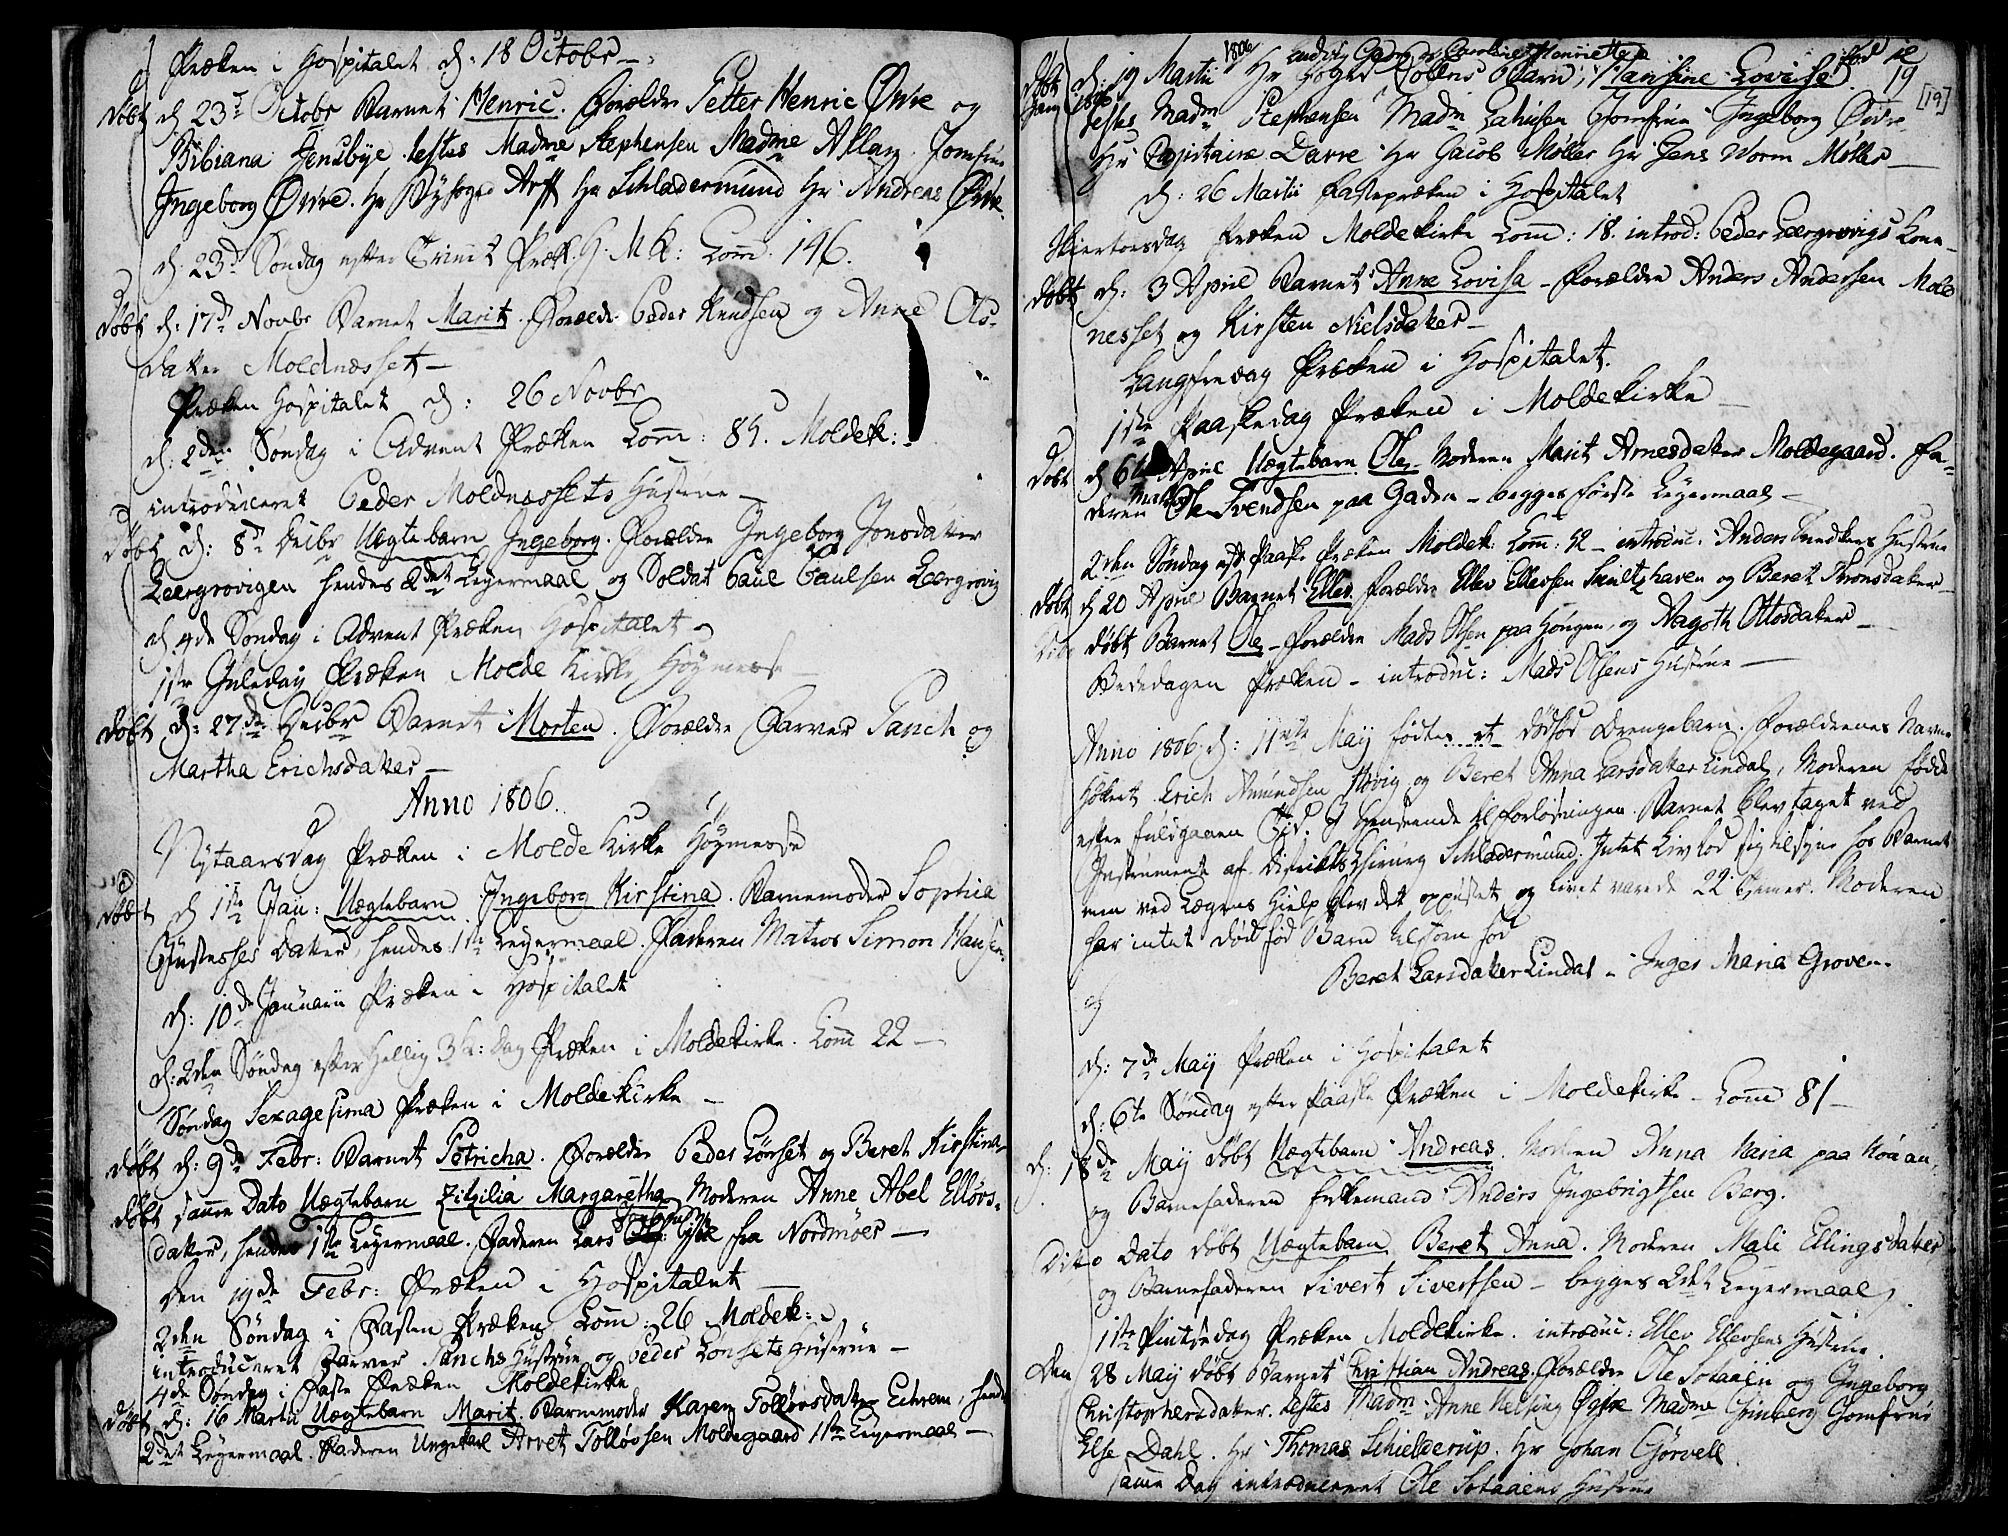 Præken i Hospitalet d: 18 Octobr
døbt d 23de Octobr Barnet Henric. Forældre Petter Henric Øvre og
Bibiana Jensbye. testes Madme Stephensen Madme Allan. Jomfrue
Ingeborg Øvre. Hr Byfoged Arff Hr Schladermund Hr Andreas Øvre
d: 23d Søndag efter Trinit Præk. G. M K: Com 146.
døbt d: 17de Novbr Barnet Marit. Foræld. Peder Knudsen og Anne Ols-
datter Moldnæsset
Præken Hospitalet d: 26 Novbr
d: 2den Søndag i Advent Præken Com: 85. Moldek:
introduceret Peder Moldnæssets Hustrue
døbt d: 8de Decbr Uægte barn Ingeborg. Forældre Ingeborg Jonsdatter
Leergrovigen hendes 2det Leyermaal og Soldat Paul Paulsen Leergrovig
d 4de Søndag i Advent Præken Hospitalet
1ste Juledag Præken Molde Kirke Høymesse
døbt d: 27de Decbr Barnet Morten. Forældre Farver Panch og
Martha Erichsdatter
Anno 1806.
Nytaarsdag Præken i Molde Kirke Høymesse
døbt d 1ste Jan: Uægtebarn Ingeborg Kirstina. Barnemoder Sophia
datter, hendes 1ste Leyermaal. Faderen Matros Simon Hansen
d: 10de Januarii Præken i Hospitalet
d: 2den Søndag efter Hellig 3K: dag Præken i Moldekirke. Com 22
Søndag Sexagesima Præken i Moldekirke
døbt d: 9de Febr: Barnet Petricha. Forældre Peder Lønset og Beret Kirstina
døbt samme Dato Uægtebarn Zitzilia Margaretha Moderen Anne Abel Elløvs-
datter, hendes 1ste Leyermaal. Faderen Lars fra Nordmøer
den 19de Febr: Præken i Hospitalet
2den Søndag i Fasten Præken Com: 26 Moldek:
introduceret Farver Panchs Hustrue og Peder Lønsets Hustrue
4de Søndag i Faste Præken Moldekirke
døbt d: 16 Martii Uægtebarn Marit. Barnemoder Karen Tolløvsdatter Eckrem, hendes
2det Leyermaal. Faderen Ungekarl Arvet Tolløvsen Moldegaard 1ste Leyermaal
1806 Ludvig Georg Caroline Henriette fød
døbt d: 19 Martii Hr Foged Collens Barn, Hansine Lovise 19
[19]
testes Madm Stephensen Madm Jomfrue Ingeborg Øvre
Hr Capitaine Darre Hr Jacob Møller Hr Jens Worm Møller
d: 26 Martii Fastepræken i Hospitalet
Skiertorsdag Præken Moldekirke Com: 18. introd: Peder Leergrovigs Kone
døbt d: 3 April Barnet Anne Lovisa - Forældre Anders Andersen Mold
nesset og Kirsten Nielsdatter
Langfredag Præken i Hospitalet.
1ste Paaskedag Præken i Moldekirke
døbt d 6te April Uægtebarn Ole. Moderen Marit Arnesdatter Moldegaard. Fa-
deren Matros Ole Svendsen paa Gaden - begges første Leyermaal
2den Søndag eft Paaske Præken Moldek: Com: 42 - introduc. Anders Hustrue
døbt d 20 April Barnet Ellev Forældre Ellev Ellevsen Smultzhaven og Beret Thronsdatter
døbt Barnet Ole - Forældre Mads Olsen paa Hougen, og Magoth Ottosdatter
Bededagen Præken - introduc: Mads Olsens Hustrue
Anno 1806 d: 11te May fødtes et dødfød Drengebarn. Forældrenes Navne
Erich Amundsen Hovig og Beret Anna Larsdatter Lindal, Moderen fødde
efter fuldgaaen Tid. I Henseende til Forløsningen. Barnet blev taget ved
Instrument af Districts Chirurg Schladermund. Intet Liv lod sig tilsyne hos Barnet
men ved Lægens Hielp blev det oppustet og livet varede 22 Timer. Moderen
har intet død fød Barn tilforn fød
Beret Larsdatter Lindal - Inger Maria Groven.
d: 7de May Præken i Hospitalet
d: 6te Søndag efter Paaske Præken i Moldekirke - Com 81
d: 18de May døbt Uægtebarn Andreas. Moderen Anna Maria paa
og Barnefaderen Enkemand Anders Ingebrigtsen Berg.
Dito Dato døbt Uægtebarn Beret Anna. Moderen Mali Ellingsdatter
og Barnefaderen Sivert Sivertsen - begges 2det Leyermaal
1ste Pintzedag Præken Moldekirke. introduc: Ellev Ellevsens Hustrue.
Den 28 May døbt Barnet Christian Andreas. Forældre Ole Sotaaen og Ingeborg
Christophersdatter. testes Madm Anne Helsing Øvre Madme Grinberg Jomfrue
Else Dahl. Hr Thomas Schielderup. Hr Johan Gørvell.
samme Dag introduceret Ole Sotaaens Hustrue